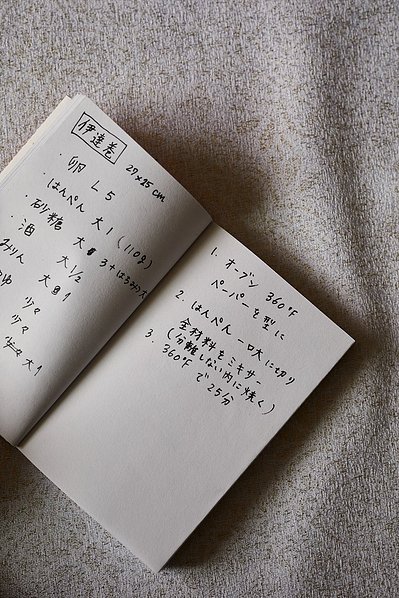 伊達巻
27×25cm
・卵 L5
・はんぺん 大1 (110g)
・砂糖 大 3+はちみつ大
・酒 大1/2
みりん 大 1
ツマ
ツマ
大1
1. オーブン 360°F
ペーパーを型に
2. はんぺん 一口大に切り
全材料をミキサー
(分離しない内に焼く)
3. 360°F で 25分